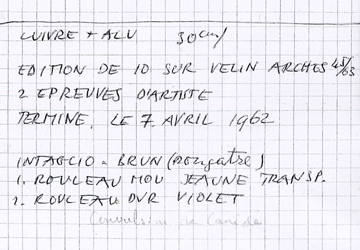 CUIVRE + ALU 30 cm/
EDITION DE 10 SUR VELIN ARCHES 45/63
2 EPREUVES D'ARTISTE
TERMINE, LE 7 AVRIL 1962
INTAGLIO - BRUN (rougeatre)
1. ROULEAU MOU JEAUNE TRANSP.
2. ROULEAU DUR VIOLET